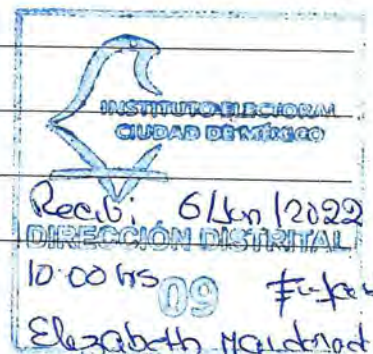 INSTITUTO ELECTORAL
CIUDAD DE MÉXICO
Recibi 6/Jun/2022
DIRECCIÓN DISTRITAL
10:00 hrs
09
Elizabeth Maldonad